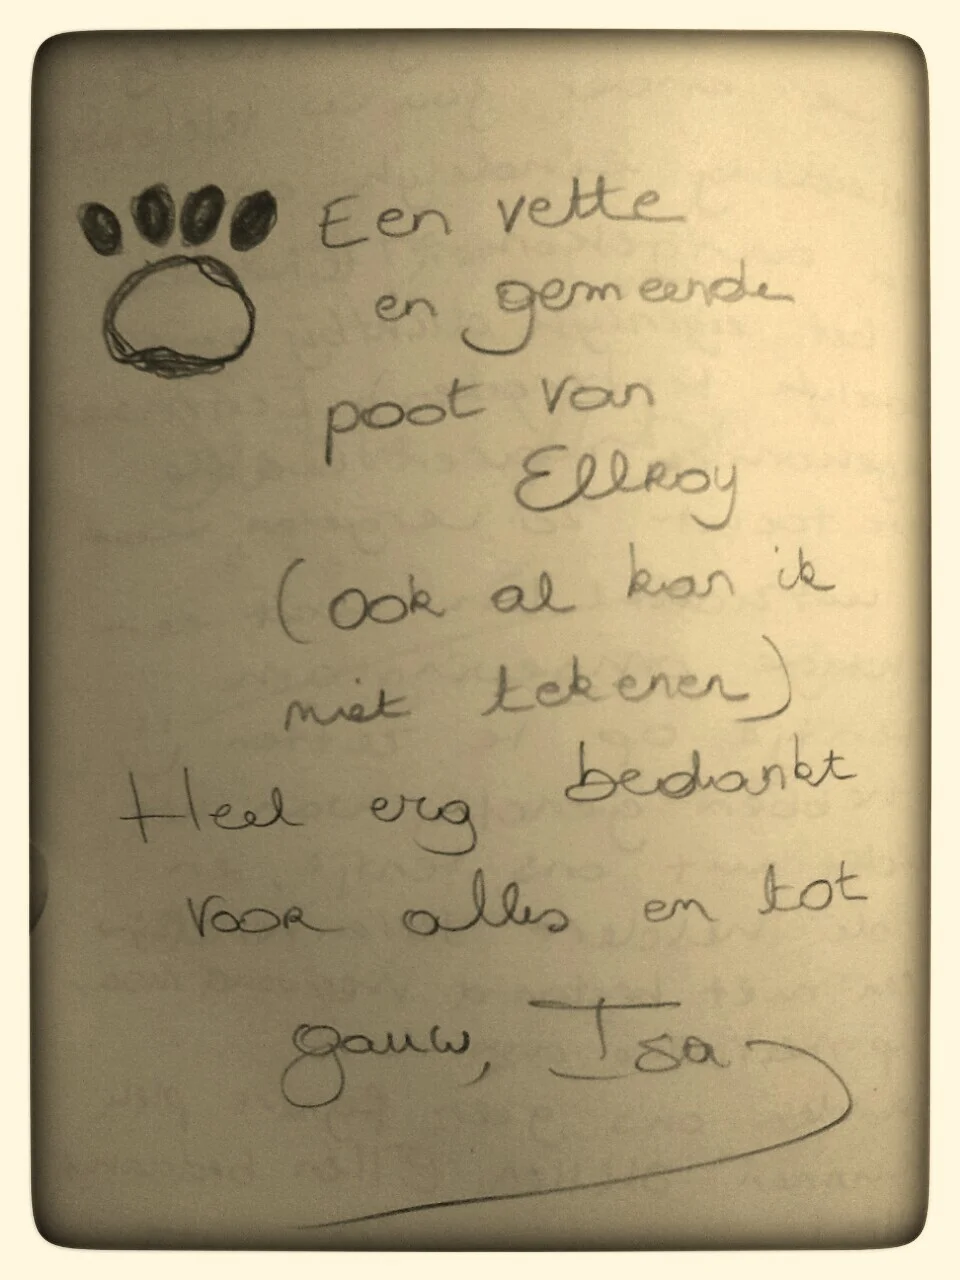 Een vette
en gemeende
poot van
Ellroy
(ook al kan ik
niet tekenen)
Heel erg bedankt
voor alles en tot
gauw, Isa